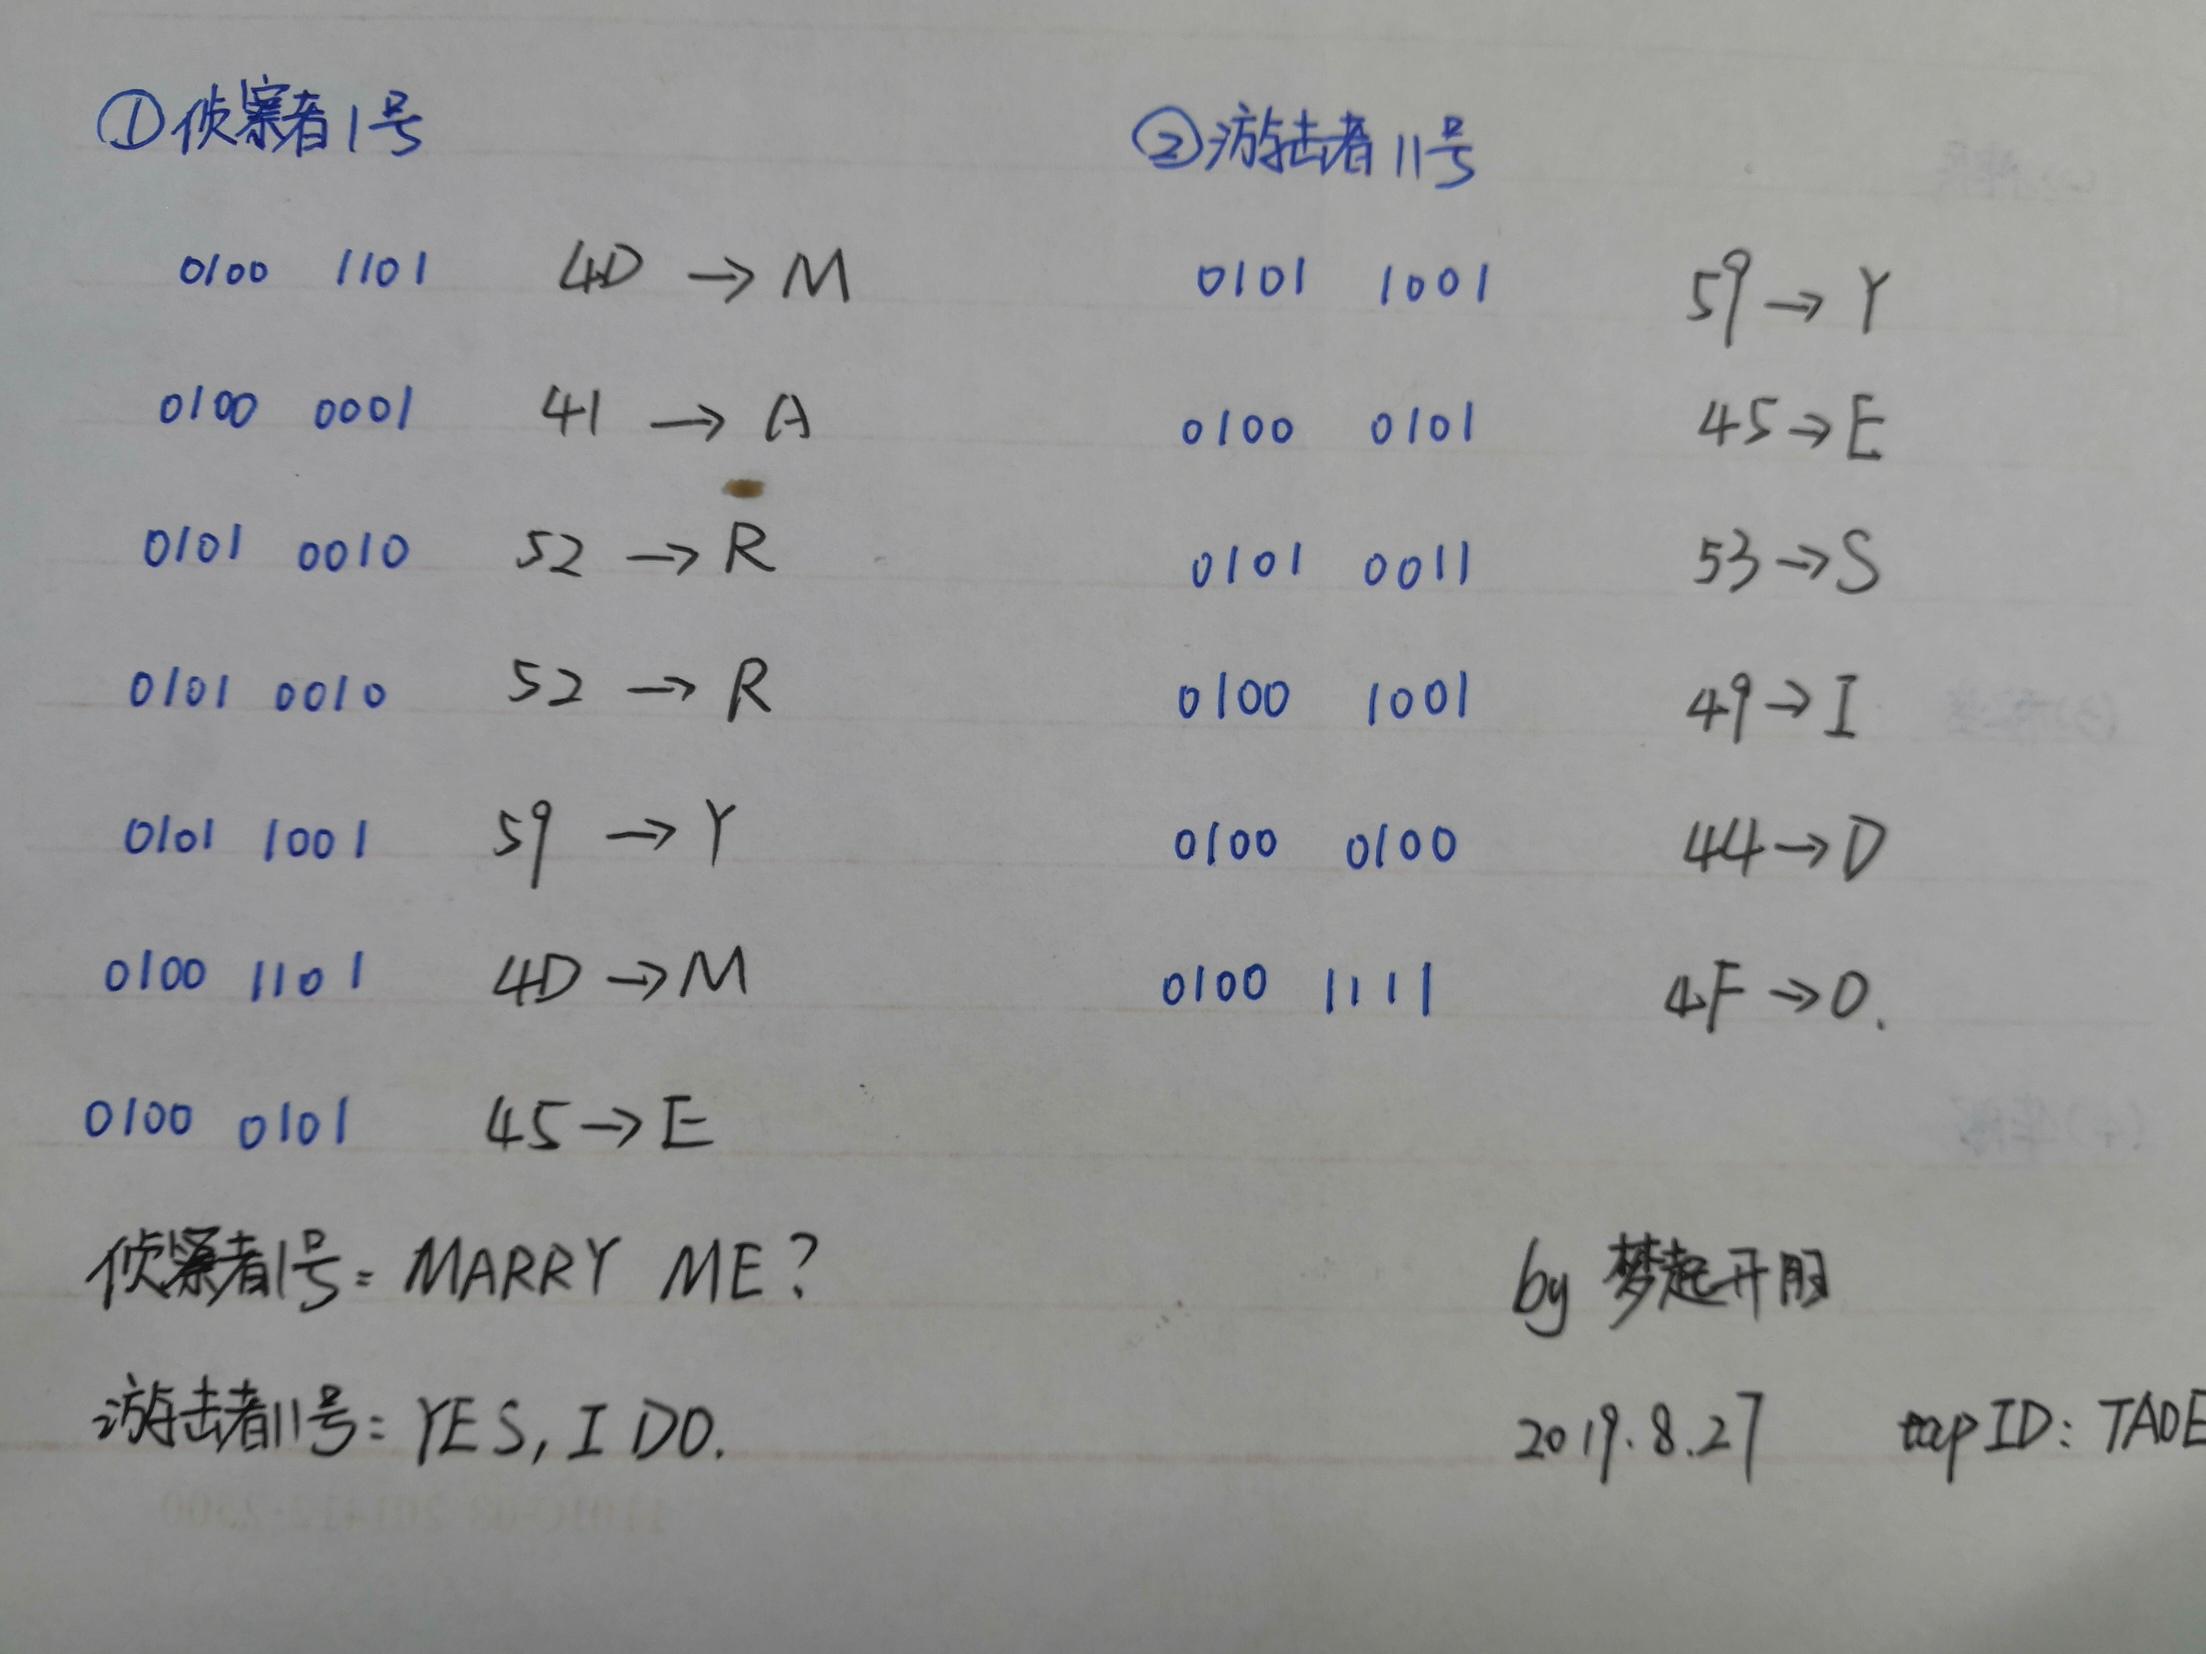 ①侦察者1号
0100 1101 4D → M
0100 0001 41 → A
0101 0010 52 → R
0101 0010 52 → R
0101 1001 59 → Y
0100 1101 4D → M
0100 0101 45 → E
②游击者11号
0101 1001 59 → Y
0100 0101 45 → E
0101 0011 53 → S
0100 1001 49 → I
0100 0100 44 → D
0100 1111 4F → O.
侦察者1号: MARRY ME?
游击者11号: YES, I DO.
by 梦起开阳
2019.8.27 tap ID: TAOE